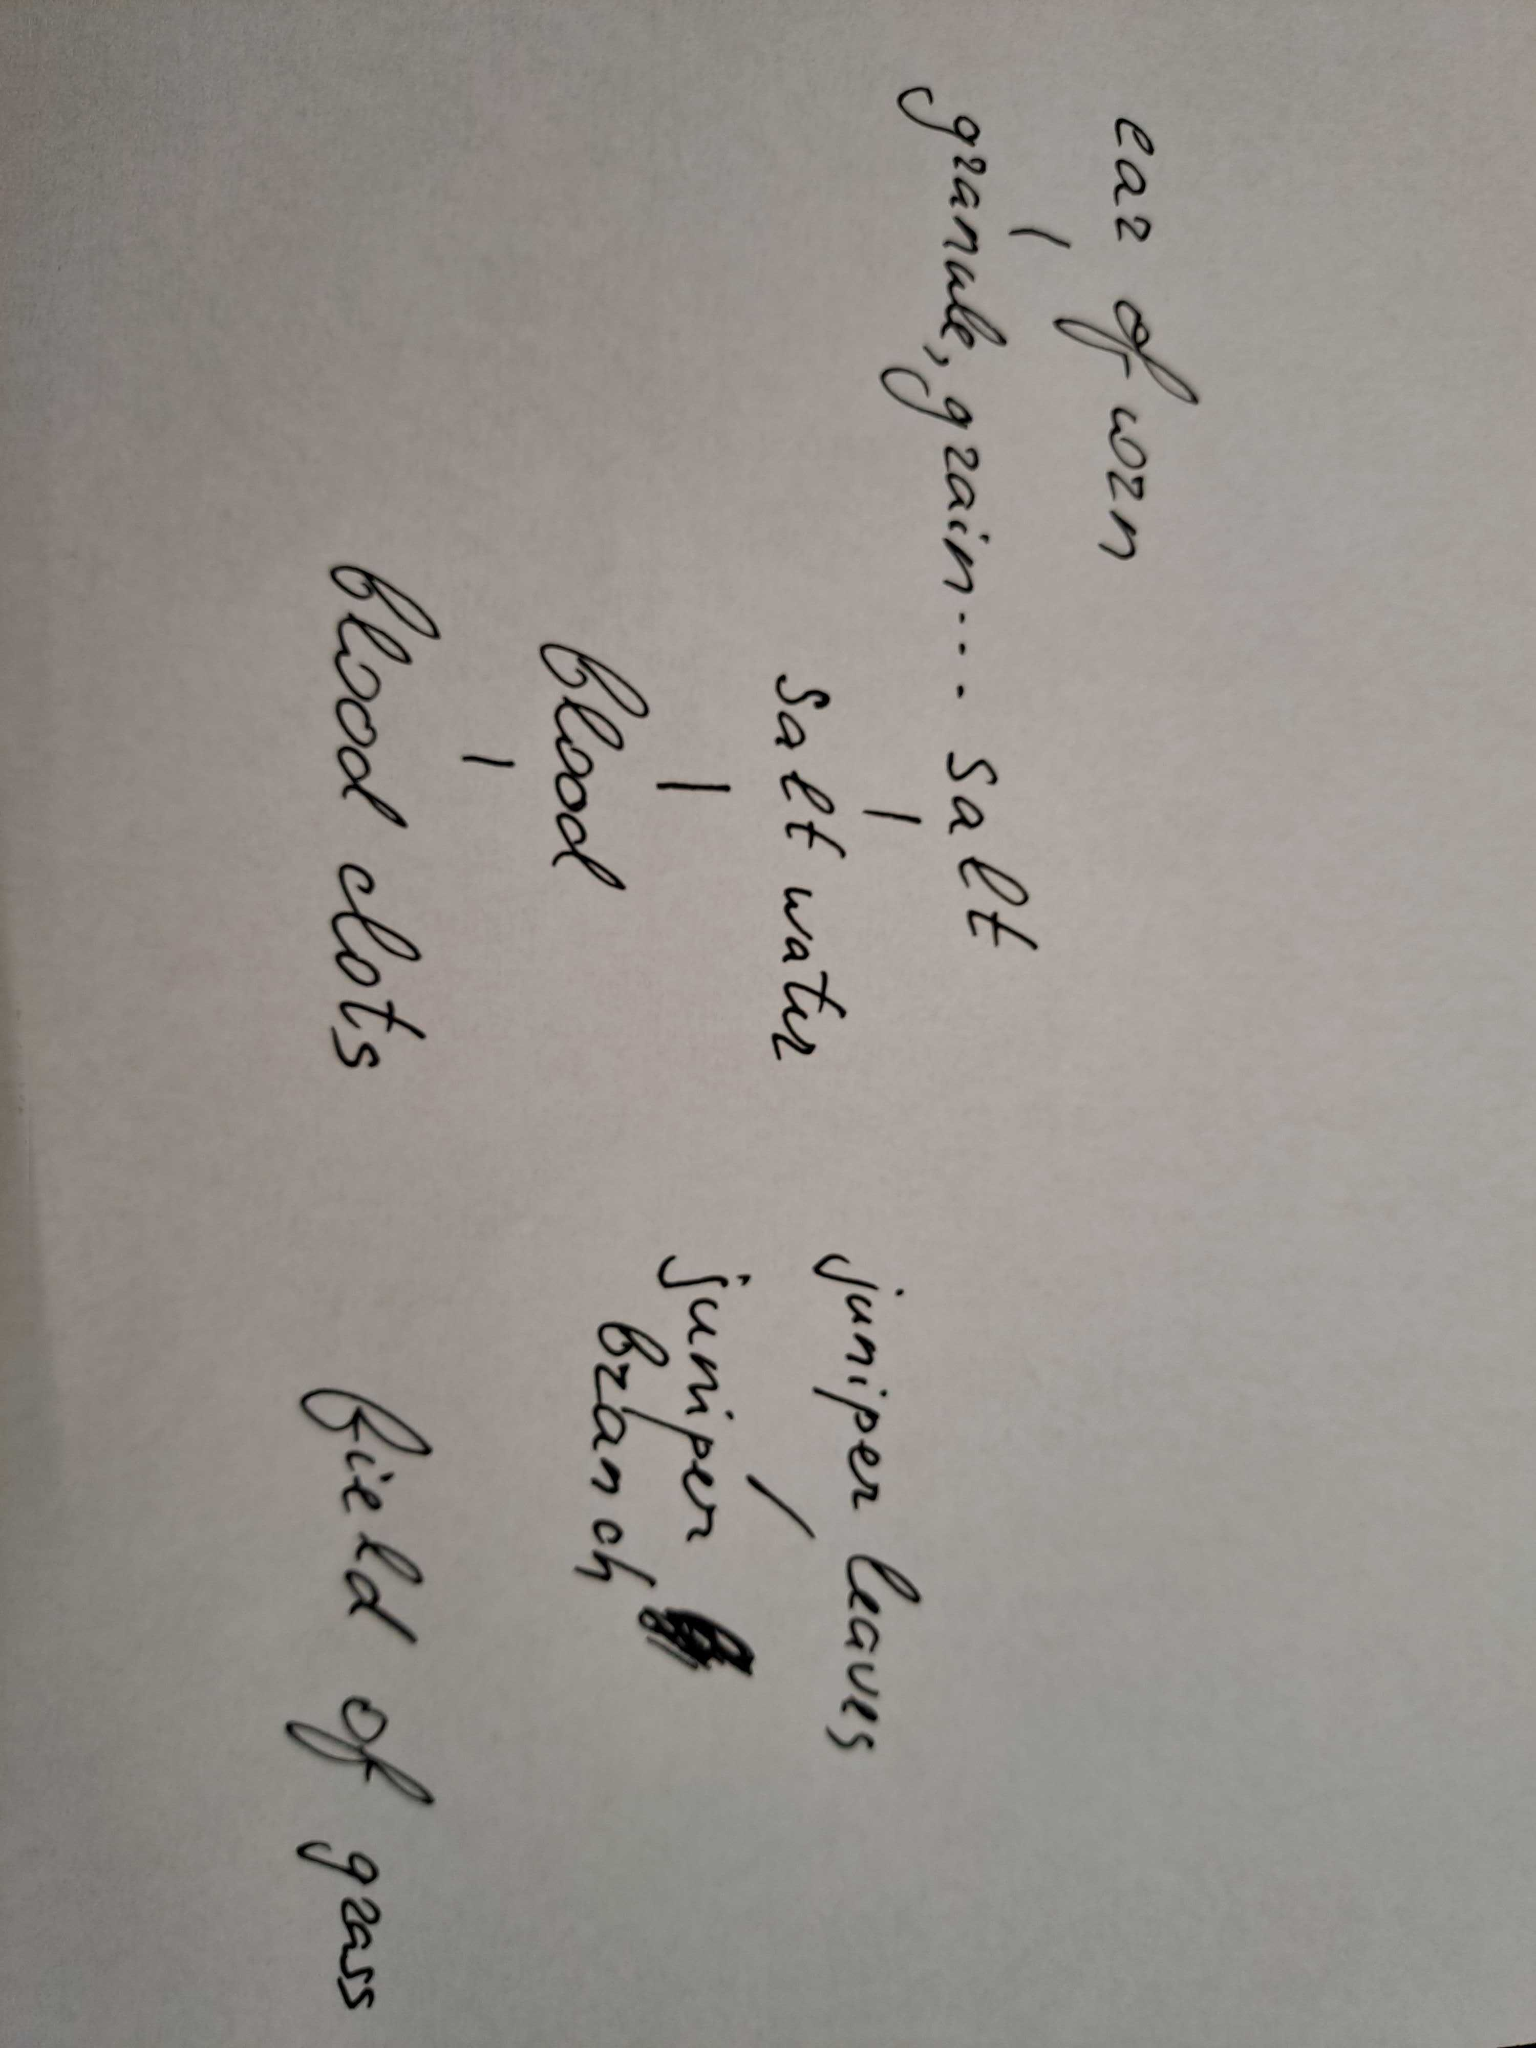 ear of corn
granule, grain... salt
salt water
blood
blood clots
juniper leaves
juniper
branch
field of grass